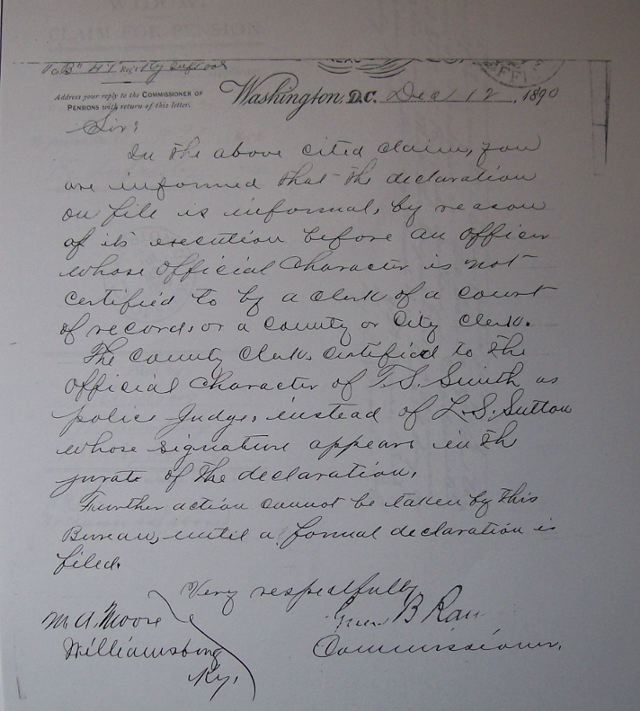 CLAIM FOR PENSION
Address your reply to the COMMISSIONER OF
PENSIONS with return of this letter.
Washington, D.C. Dec 12, 1890
Sir:
In the above cited claim, you
are informed that the declaration
on file is informal, by reason
of its execution before an officer
whose official character is not
certified to by a clerk of a court
of records or a county or city clerk.
The county clerk certified to the
official character of T. S. Smith as
police Judge, instead of L. S. Sutton
whose signature appears in the
jurate of the declaration.
Further action cannot be taken by this
Bureau, until a formal declaration is
filed.
Very respectfully
M. A. Moore
Williamsburg
Ky.
Green B Raum
Commissioner.